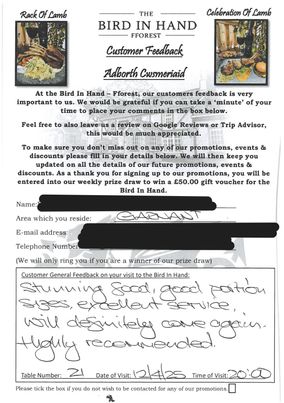 Rack Of Lamb
Celebration Of Lamb
THE
BIRD IN HAND
FFOREST
Customer Feedback
Adborth Cwsmeriaid
At the Bird In Hand – Fforest, our customers feedback is very
important to us. We would be grateful if you can take a ‘minute’ of your
time to place your comments in the box below.
Feel free to also leave us a review on Google Reviews or Trip Advisor,
this would be much appreciated.
To make sure you don't miss out on any of our promotions, events &
discounts please fill in your details below. We will then keep you
updated on all the details of our future promotions, events &
discounts. As a thank you for signing up to our promotions, you will be
entered into our weekly prize draw to win a £50.00 gift voucher for the
Bird In Hand.
Name:
Area which you reside: GARNANT
E-mail address
Telephone Number
(We will only ring if you are a winner of our prize draw)
Customer General Feedback on your visit to the Bird In Hand:
Stunning food, good portion
sizes, excellent service,
will definitely come again.
Highly recommended.
Table Number: 21 Date of Visit: 12/4/25 Time of Visit: 20:00
Please tick the box if you do not wish to be contacted for any of our promotions.